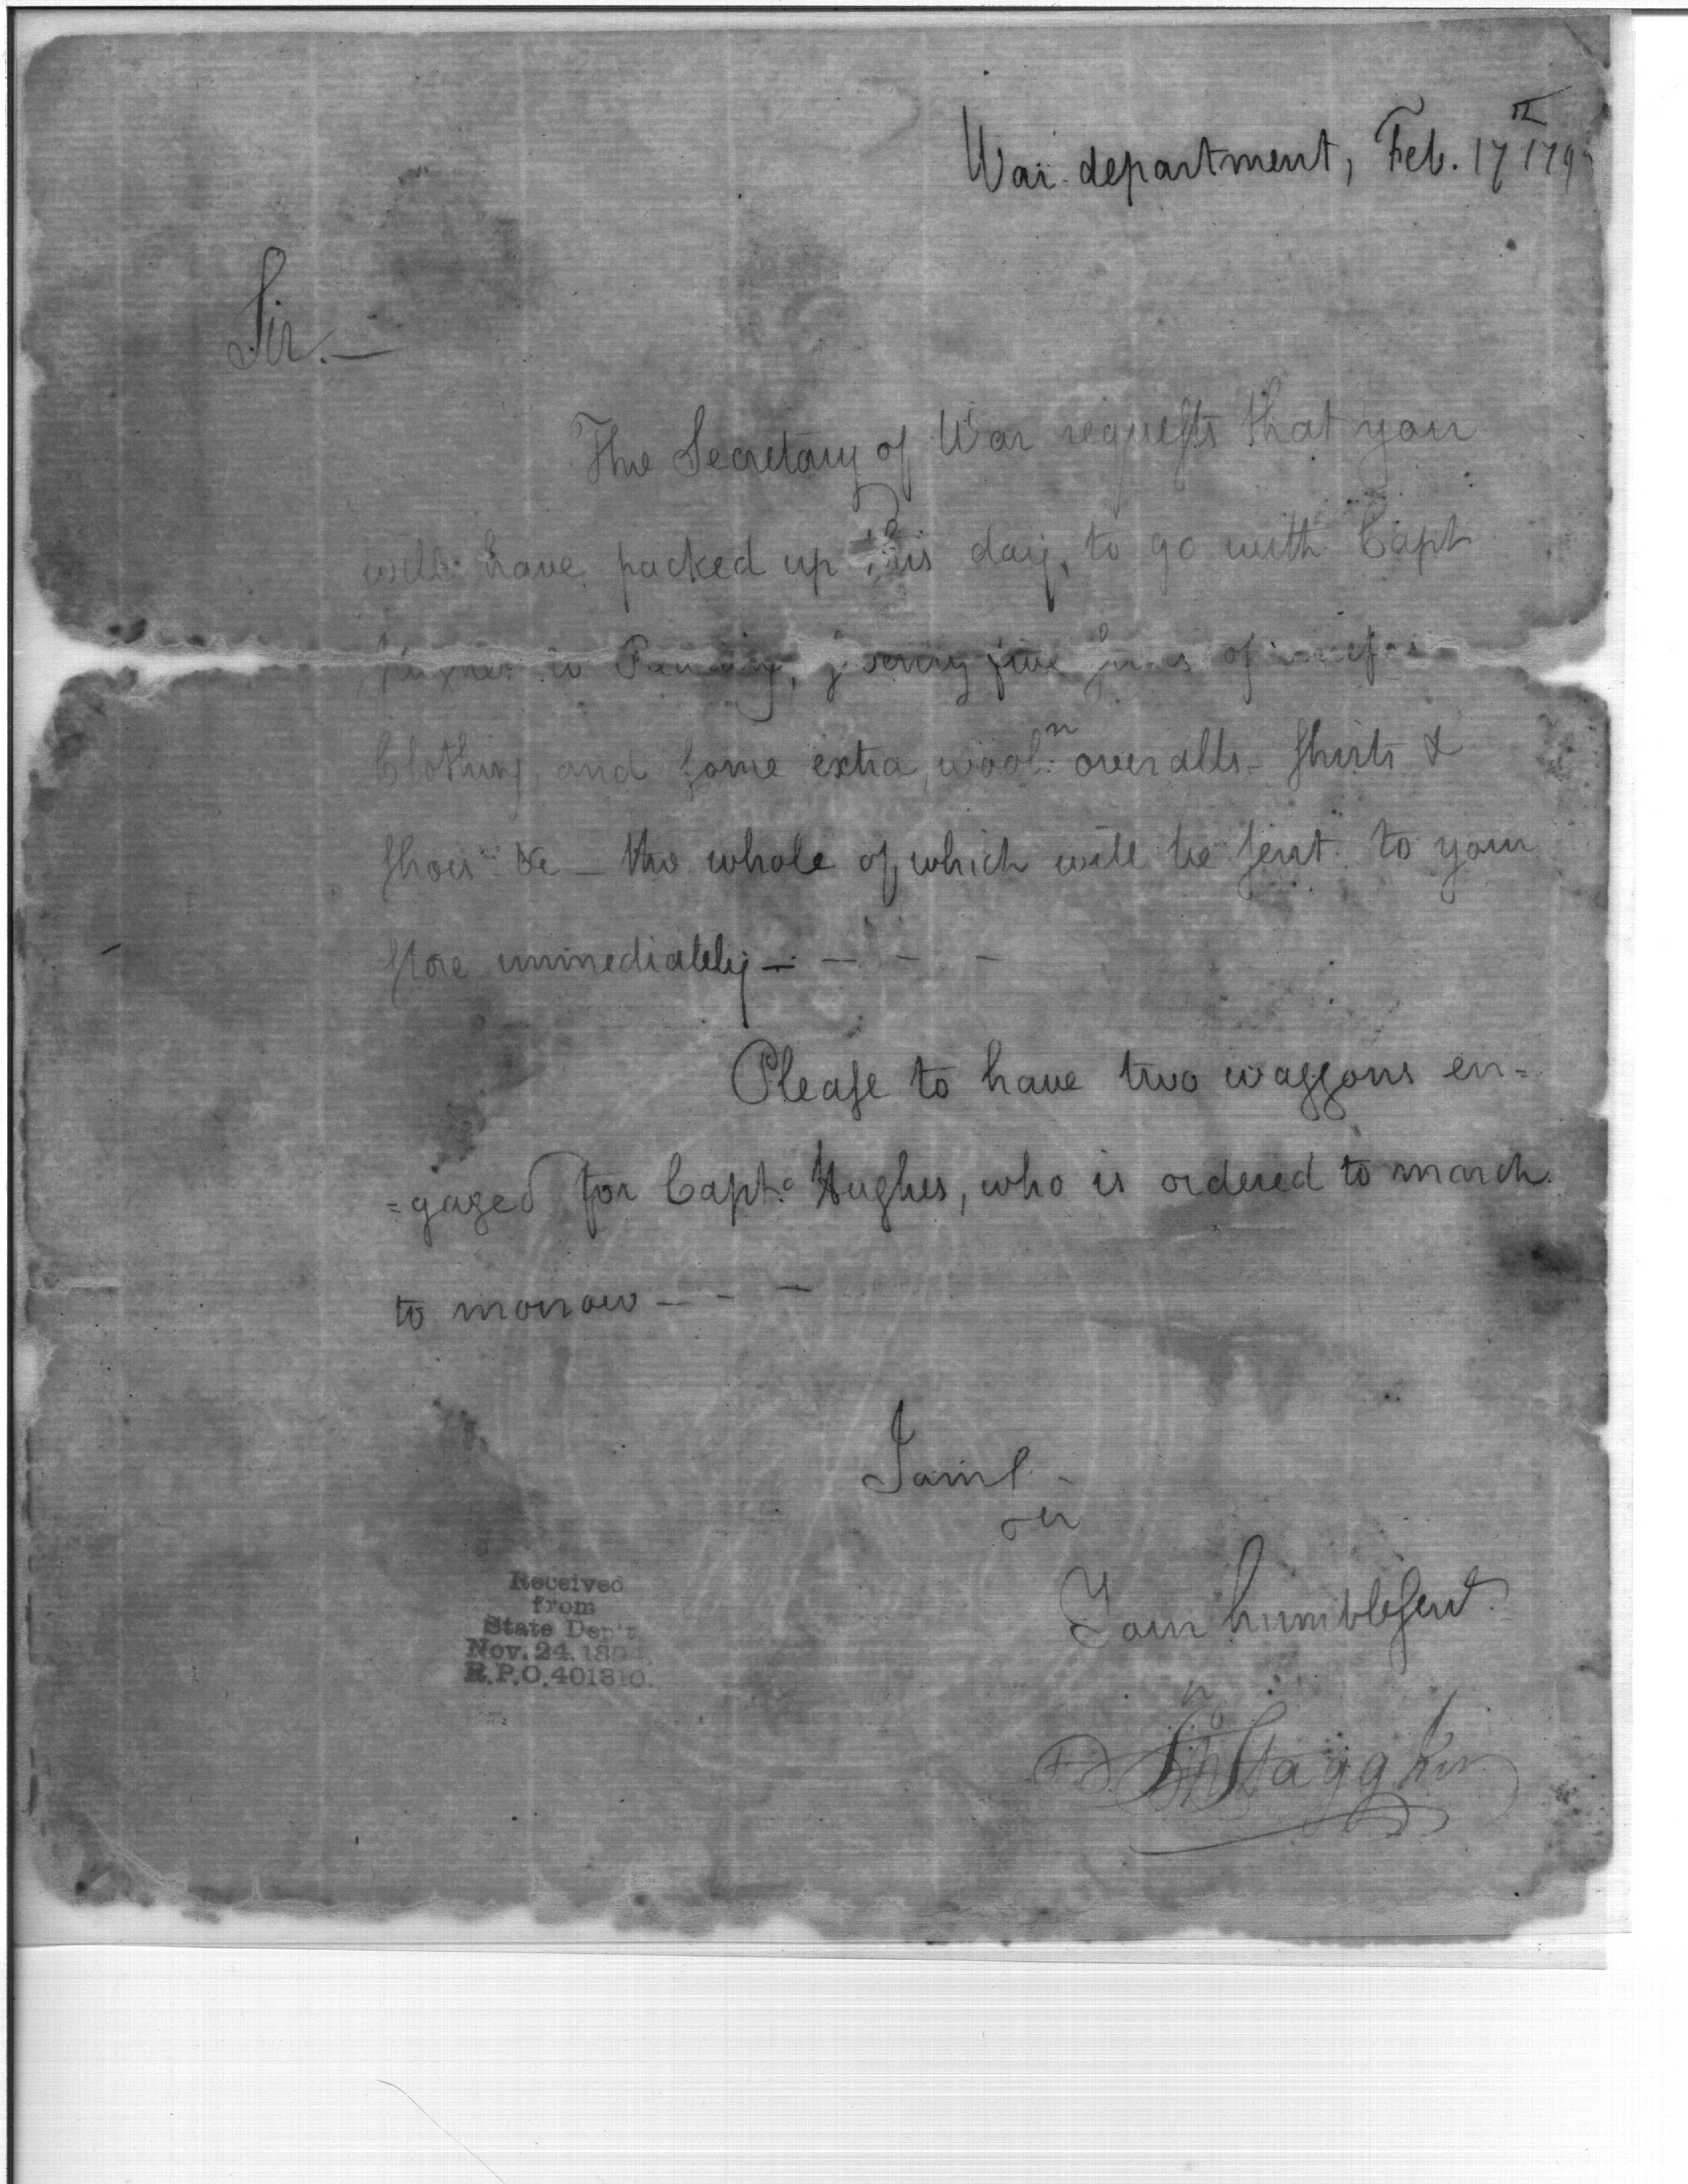 War department, Feb. 17th 179
Sir.—
The Secretary of War requests that you
will have packed up this day, to go with Capt
Hughes to of
Clothing, and some extra, wooln overalls - shirts &
shoes &c — the whole of which will be sent to your
store immediately — — — —
Please to have two waggons en=
=gaged for Capt. Hughes, who is ordered to march
to morrow — - —
I am S
er
Your humble servt
Jno Stagg Junr
Received
from
State Dep't
Nov. 24. 189
R.P.O. 401310.